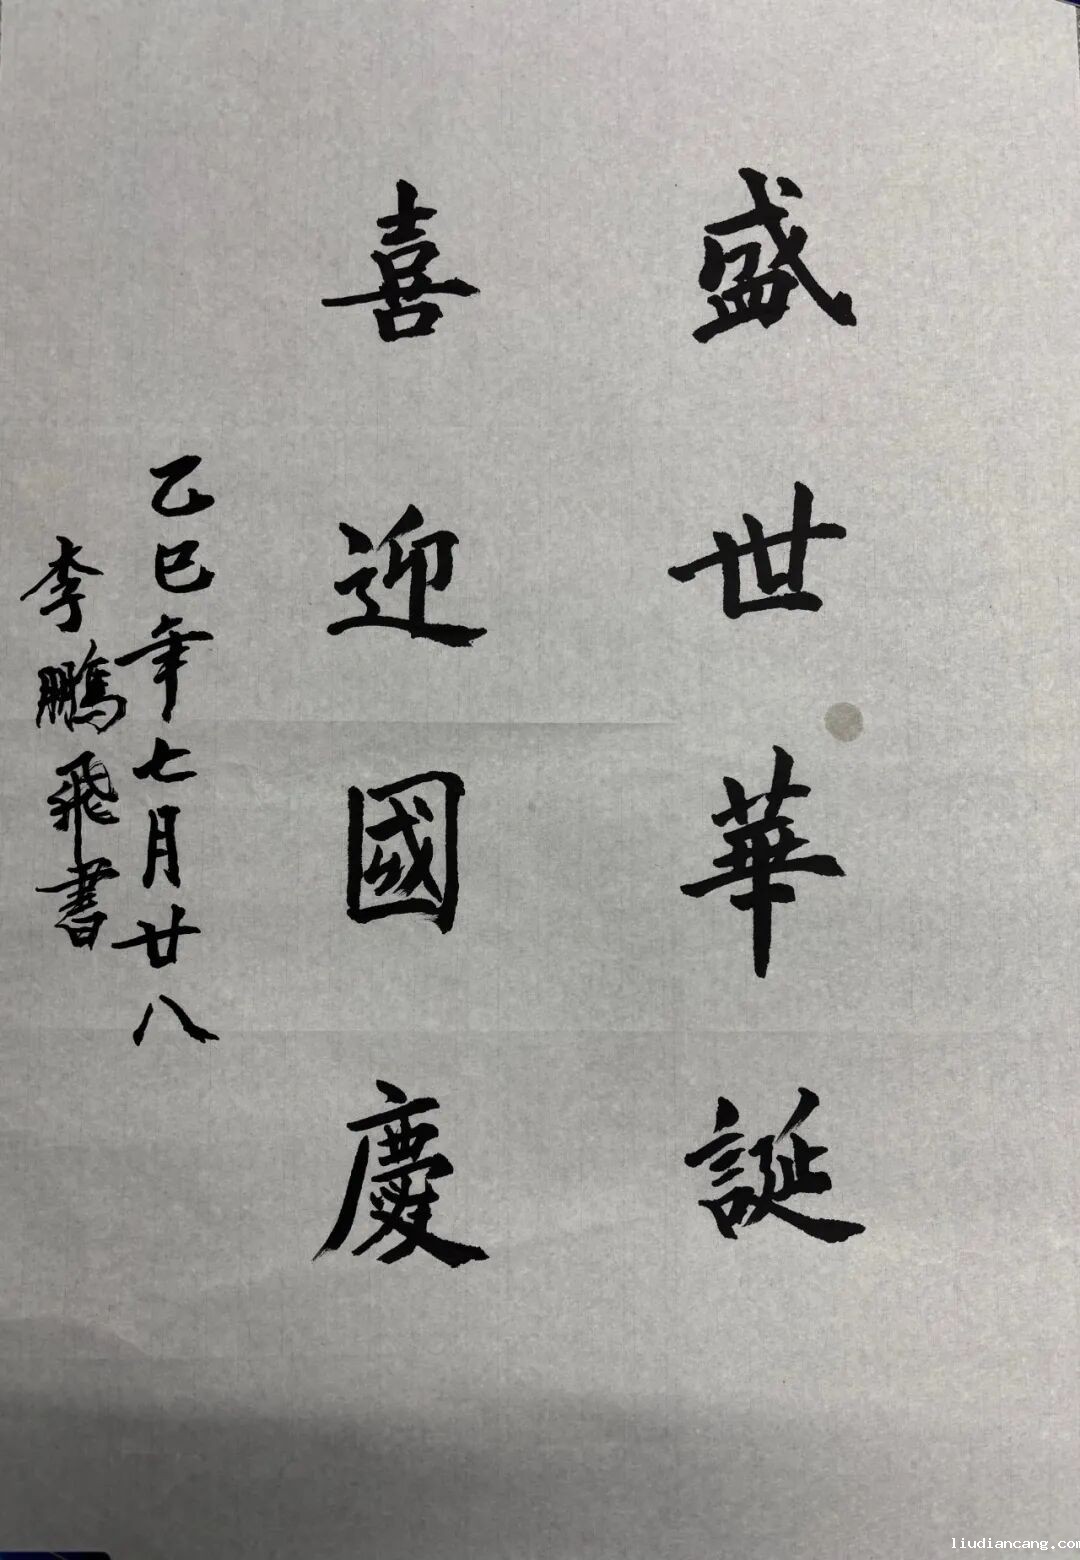 盛世華誕
喜迎國慶
乙巳年七月廿八
李鵬飛書
liudiancang.com